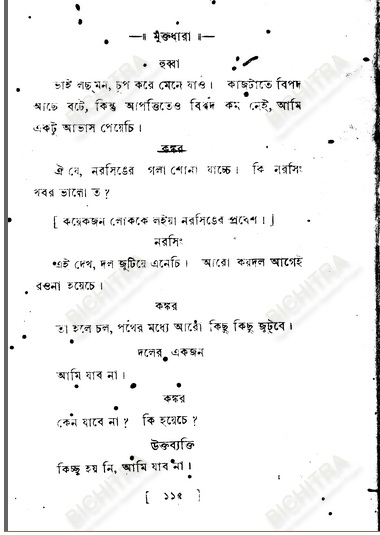 —॥ মুক্তধারা ॥—
হুব্বা
ভাই লছমন, চুপ করে মেনে যাও। কাজটাতে বিপদ
আছে বটে, কিন্তু আপত্তিতেও বিপদ কম নেই, আমি
একটু আভাস পেয়েচি।
কঙ্কর
ঐ যে, নরসিঙের গলা শোনা যাচ্চে। কি নরসিং
খবর ভালো ত?
[ কয়েকজন লোককে লইয়া নরসিঙের প্রবেশ। ]
নরসিং
এই দেখ, দল জুটিয়ে এনেচি। আরো কয়দল আগেই
রওনা হয়েচে।
কঙ্কর
তা হলে চল, পথের মধ্যে আরো কিছু কিছু জুটবে।
দলের একজন
আমি যাব না।
কঙ্কর
কেন যাবে না? কি হয়েচে?
উক্তব্যক্তি
কিচ্ছু হয় নি, আমি যাব না।
[ ১১৫ ]
BICHITRA
BICHITRA
BICHITRA
BICHITRA
BICHITRA
BICHITRA